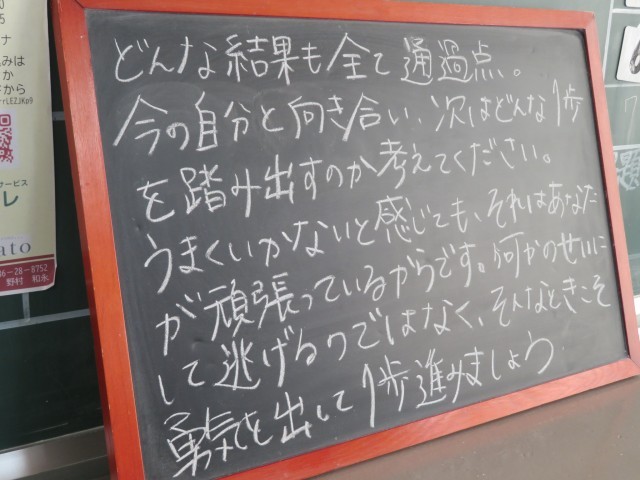 どんな結果も全て通過点。
今の自分と向き合い、次はどんな1歩
を踏み出すのか考えてください。
うまくいかないと感じても、それはあなた
が頑張っているからです。何かのせいに
して逃げるのではなく、そんなときこそ
勇気を出して1歩進みましょう
ナ
みは
か
から
rrLEZJKo9
サービス
レ
ato
36-28-8752
野村 和永